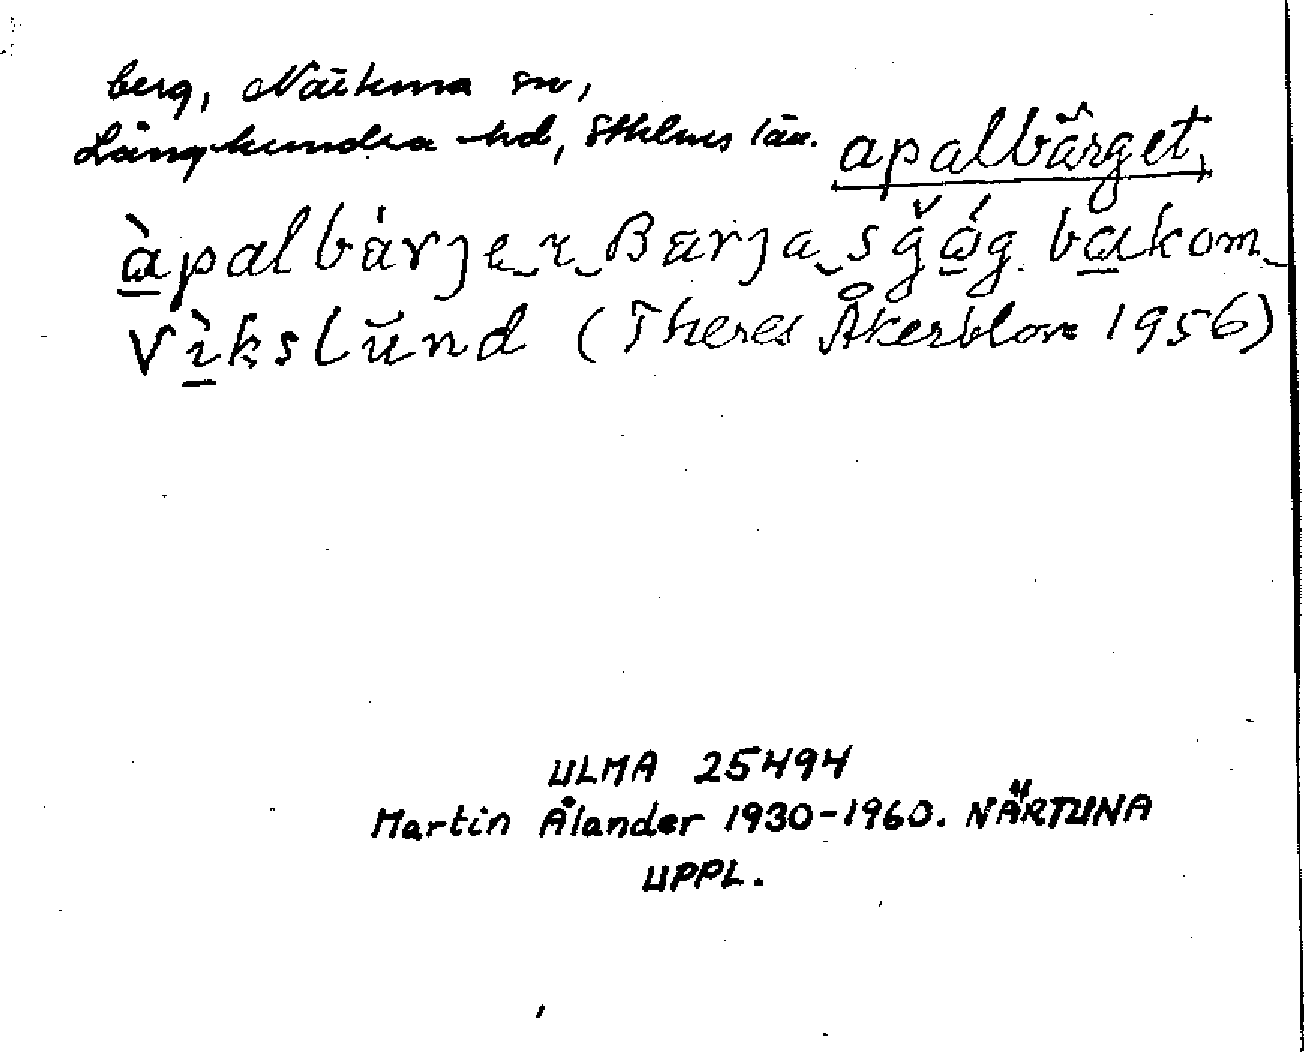 berg, Närtuna sn,
Långhundra hd, Sthlms län.
apalbärget,
àpalbárjer_ɩ_Barja_sgǿg bakom_
Vìkslŭnd (Theres Åkerblom 1956)
ULMA 25494
Martin Ålander 1930-1960. NÄRTUNA
UPPL.